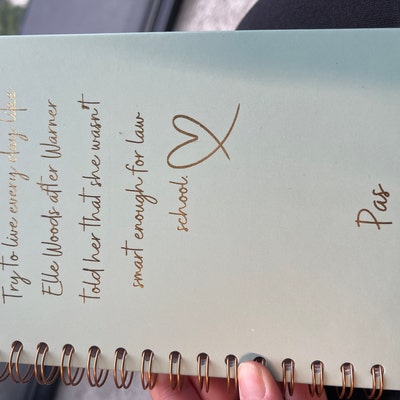 Try to live every day like
Elle Woods after Warner
told her that she wasn't
smart enough for law
school.
Pas